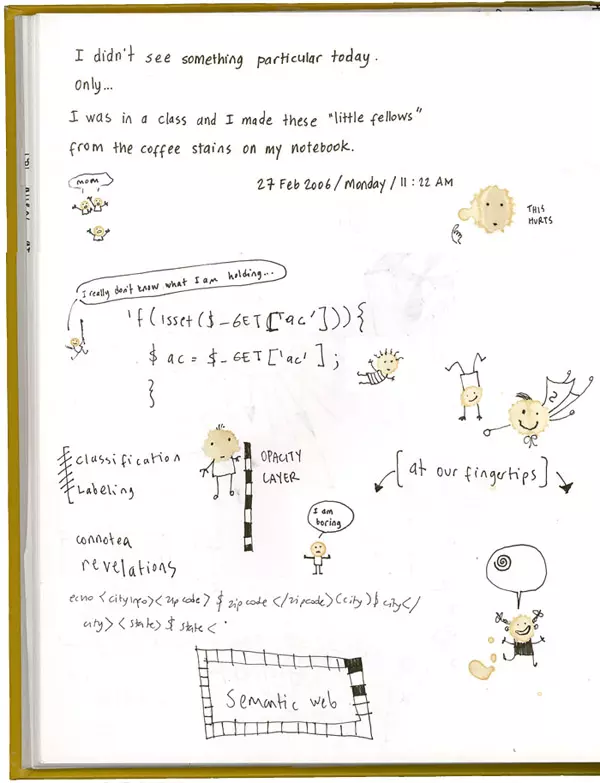 I didn't see something particular today.
only...
I was in a class and I made these "little fellows"
from the coffee stains on my notebook.
27 Feb 2006/Monday/11:22 AM
mom
THIS
HURTS
I really don't know what I am holding...
if(isset($_GET['ac'])){
$ac = $_GET['ac'];
}
classification
Labeling
OPACITY
LAYER
[at our fingertips]
I am
boring
connotea
revelations
echo <cityinfo><zipcode>$zipcode</zipcode><city>$city</
city><state>$state<
Semantic web